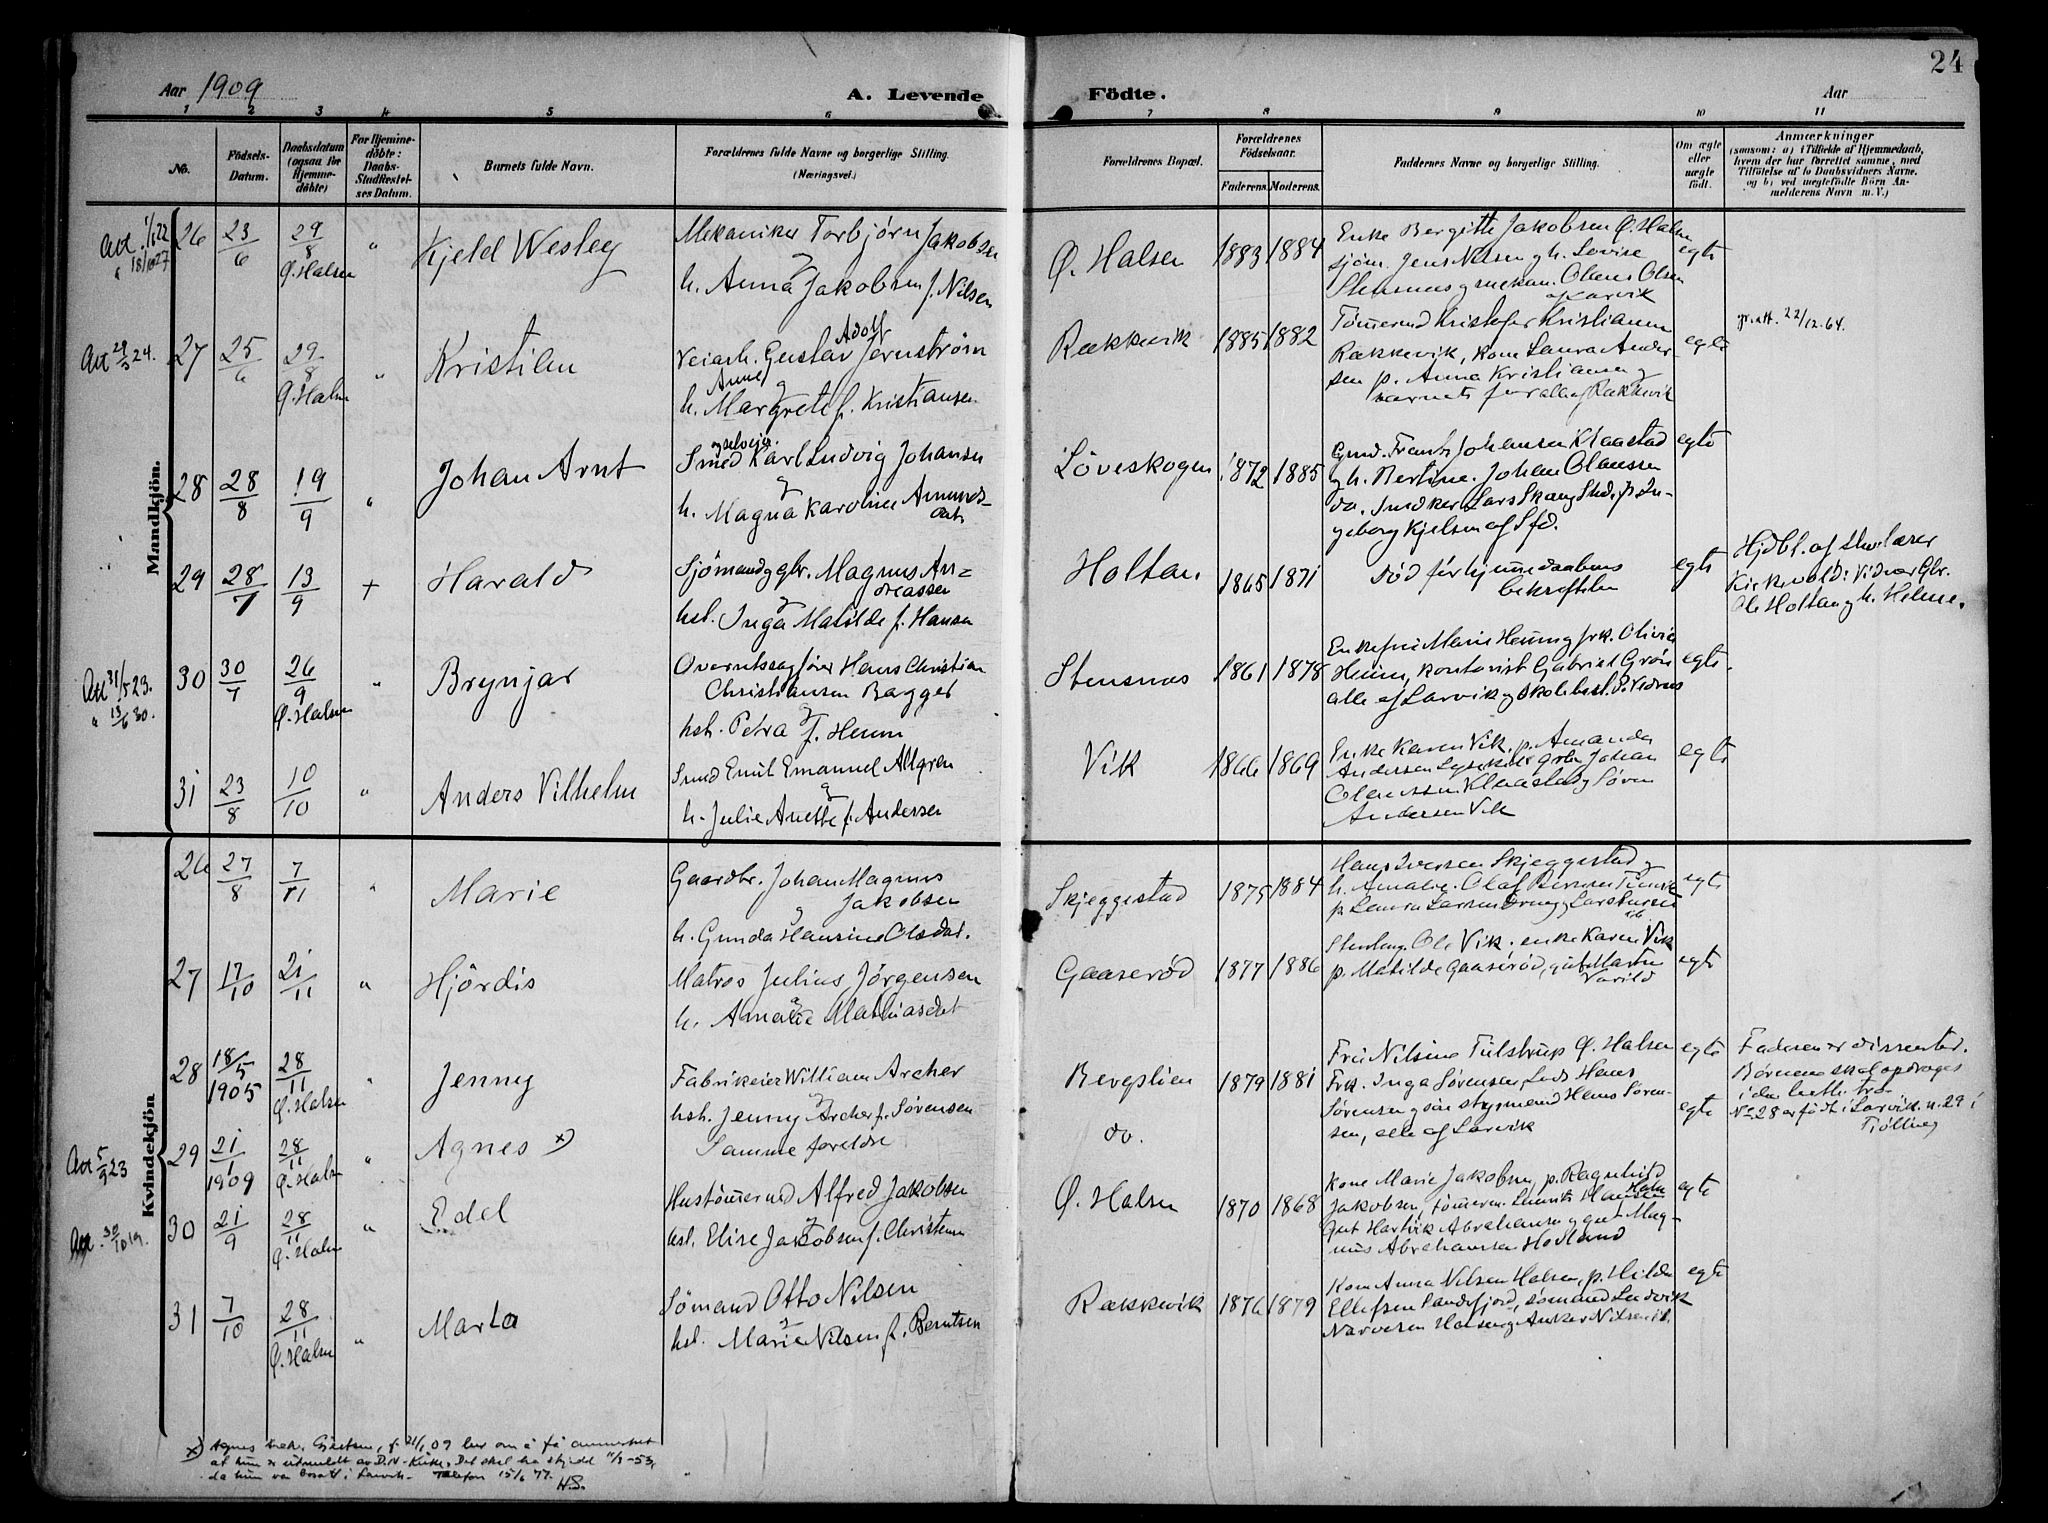 24
Aar 1909
A. Levende Födte.
Aar
1 2 3 4 5 6 7 8 9 10 11
No.
Födsels-Datum.
Daabsdatum (ogsaa for Hjemmedöbte)
For Hjemmedöbte: Daabs-Stadfestelses Datum.
Barnets fulde Navn.
Forældrenes fulde Navne og borgerlige Stilling. (Næringsvei.)
Forældrenes Bopæl.
Forældrenes Födselsaar.
Faderens. Moderens.
Faddernes Navne og borgerlige Stilling.
Om ægte eller uægte födt.
Anmærkninger
(saasom: a) i Tilfælde af Hjemmedaab,
hvem der har forrettet samme, med
Tilföielse af to Daabsvidners Navne.
og b) ved uægtefödte Börn An-
melderens Navn m. V.)
Mandkjön.
26 23/6 29/8 Ø. Halsen " Kjeld Wesley
Mekaniker Torbjørn Jakobsen
og
h. Anna Jakobsen f. Nilsen
Ø. Halsen 1883 1884
Enke Bergitte Jakobsen Ø. Halsen
sjøm. Jens Nilsen og h. Lovise
Stensnes og mekan. Olaus Olsen
af Larvik
egte
Att 29/3 24. 27 25/6 29/8 Ø. Halsen "
Veiarb. Gustav Adolf Jernstrøm
Anne og
h. Margrete f. Kristiansen
Rakkevik 1885 1882
Tømmermd Kristofer Kristiansen
Rakkevik, kone Laura Ander-
sen p. Anna Kristiansen og
barnets far alle af Rakkevik
egte
22/12.64.
28 28/8 19/9 " Johan Arnt
og selveier.
Smed Karl Ludvig Johansen
og
h. Magna Karoline Amunds-
datr
Løveskogen 1872 1885
Gmd. Frants Johansen Klaastad
og h. Bertine. Johan Olaussen
do. Smed Lars Skaug p. In-
geborg Kjelsen af Sfd.
egte
29 28/7 13/9 + Harald
Sjømand og gbr. Magnus An-
dreassen
og
hst. Inga Matilde f. Hansen
Holtan. 1865 1871
Død før hjemmedaabens
bekræftelse
egte
Hjdbt. af skolelærer
Kirkevold: Vidner Gbr.
Ole Holtan og h. Helene.
Att 31/5 23.
" 13/6 30.
30 30/7 26/9 Ø. Halsen " Brynjar
Overretssagfører Hans Christian
Christiansen Bagger
og
hst. Petra f. Heum
Stensnes 1861 1878
Enkefru Marie Heum og frk. Olivia
Heum, kontorist Gabriel Grøn
alle af Larvik og skolebest. P. Vidnes
egte.
31 23/8 10/10 " Anders Vilhelm
Smed Emil Emanuel Allgren
og
h. Julie Anette f. Andersen
Vik 1866 1869
Enke Karen Vik. p. Amanda
Andersen Johan
Olaussen Klaastad og Søren
Andersen Vik
egte
Kvindekjön
26 27/8 7/11 " Marie
Gaardbr. Johan Magnus
Jakobsen
og
h. Gunda Hansine Olsdat.
Skjeggestad 1875 1884
Hans Iversen Skjeggestad og
h. Amalie. Olaf
p. Laura Larsen
egte
27 17/10 21/11 " Hjördis
Matros Julius Jörgensen
og
h. Amalie Mathiasdat
Gaaserød 1877 1886
Ole Vik. enke Karen Vik
p. Matilde Gaaserød, gut Martin
Varild
egte
28 18/5 1905 28/11 Ø. Halsen " Jenny
Fabrikeier William Archer
og
hst. Jenny Archer f. Sørensen
Bergslien 1879 1881
Fru Nilsine Tulstrup Ø. Halsen
Frk. Inga Sørensen, Hans
Sørensen og styrmand Hans Søren-
sen, alle af Larvik
egte
Faderen er dissenter.
Børnene skal opdrages
i den luth. tro
No 28 er født i Larvik. n. 29 i
Tjølling
Att 5/9 23 29 21/1 1909 28/11 Ø. Halsn " Agnes x)
Samme foreldre
do.
egte
Att. 30/10 19. 30 21/9 28/11 Ø. Halsn " Edel
Hustømmermd Alfred Jakobsen
og
hst. Elise Jakobsen f. Christensen
Ø. Halsen 1870 1868
Kone Marie Jakobsen, p. Ragnhild
Jakobsen, tømmerm. Hansen Halsn
Gut Hartvik Abrahamsen og gut Mag-
nus Abrahamsen Hovland
egte
31 7/10 28/11 Ø. Halsn " Marta
Sömand Otto Nilsen
og
hst. Marie Nilsen f. Berntsen
Rakkevik 1876 1879
Kone Anna Nilsen Halsen, p. Hilda
Ellefsen Sandefjord, sømand Ludvik
Narvesen Halsen og Anker Nilsen ib.
egte
x) Agnes f. 21/1 09 ber om å få anmerket
at hun er utmeldt av D.N.-Kirke. Det skal ha skjedd 11/3-53,
da hun var bosatt i Larvik. Telefon 15/6 77.
H.S.